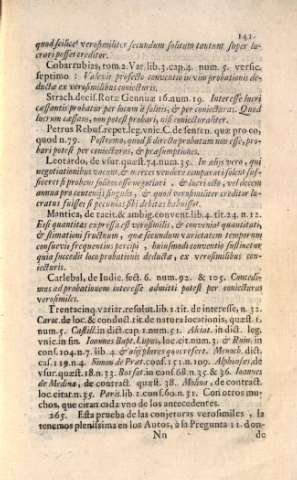 141.
quod scilicet verosimiliter secundum solitum tantum super lu-
crari posset creditor.
Cobarrubias, tom. 2. Var. lib. 3. cap. 4. num. 5. versic.
septimo : Valeret profecto conventio in vim probationis de-
ducta ex verosimilibus coniecturis.
Strach. decis. Rotæ Gennuæ 16. num. 19. Interesse lucri
cessantis probatur per lucrum solitis, & per coniecturas. Quod
lucrum cessans, non potest probari, nisi coniecturaliter.
Petrus Rebuf. repet. leg. vnic. C. de senten. quæ pro eo,
quod n. 79. Postremo, quod si directo probatum non esse, pro-
bari potest per coniecturas, & præsumptiones.
Leotardo, de vsur. quæst. 74. num. 35. In alijs vero, qui
negotiationibus vacant, & merces vendere comparare solent suf-
ficeret si probens solitos esse negotiari, & lucri octo, vel decem
annua pro centenis singulis, & quod verosimiliter creditor lu-
cratus fuisset si pecunias sibi debitas habuisset.
Mantica, de tacit. & ambig. convent. lib. 4. tit. 24. n. 12.
Est quantitas expressa est verosimilis, & conveniat quantitati,
& stimationi fructuum, quæ secundum varietatem temporum
consuevit frequentius percipi, huiusmodi conventio sustinetur
quia succedit loco probationis deducta, ex verosimilibus con-
iecturis.
Carlebal, de Iudic. sect. 6. num. 92. & 105. Concedi-
mus ad probationem interesse admitti potest per coniecturas
verosimiles.
Trentacinq. variar. resolut. lib. 1. tit. de interesse, n. 32.
Caroc. de loc. & conduct. tit. de natura locationis, quæst. 1.
num. 5. Castill. in dict. cap. 1. num. 51. Alciat. in dict. leg.
vnic. in fin. Ioannes Bapt. Lupus, loc. cit. num. 3. & Ruin. in
cons. 104. n. 7. lib. 4. & alij plures quos refert. Menoch. dict.
cas. 119. n. 4. Simon de Præt. cons. 151. n. 109. Alphons. de
vsur. quæst. 18. n. 33. Borsat. in cons. 68. n. 35. & 36. Ioannes
de Medina, de contract quæst. 38. Molina, de contract.
loc. citat. n. 35. Paris. lib. 1. cons. 60. n. 51. Con otros mu-
chos, que citan cada vno de los antecedentes.
265. Esta prueba de las conjeturas verosimiles, la
tenemos plenissima en los Autos, à la Pregunta 11. don-
Nn de